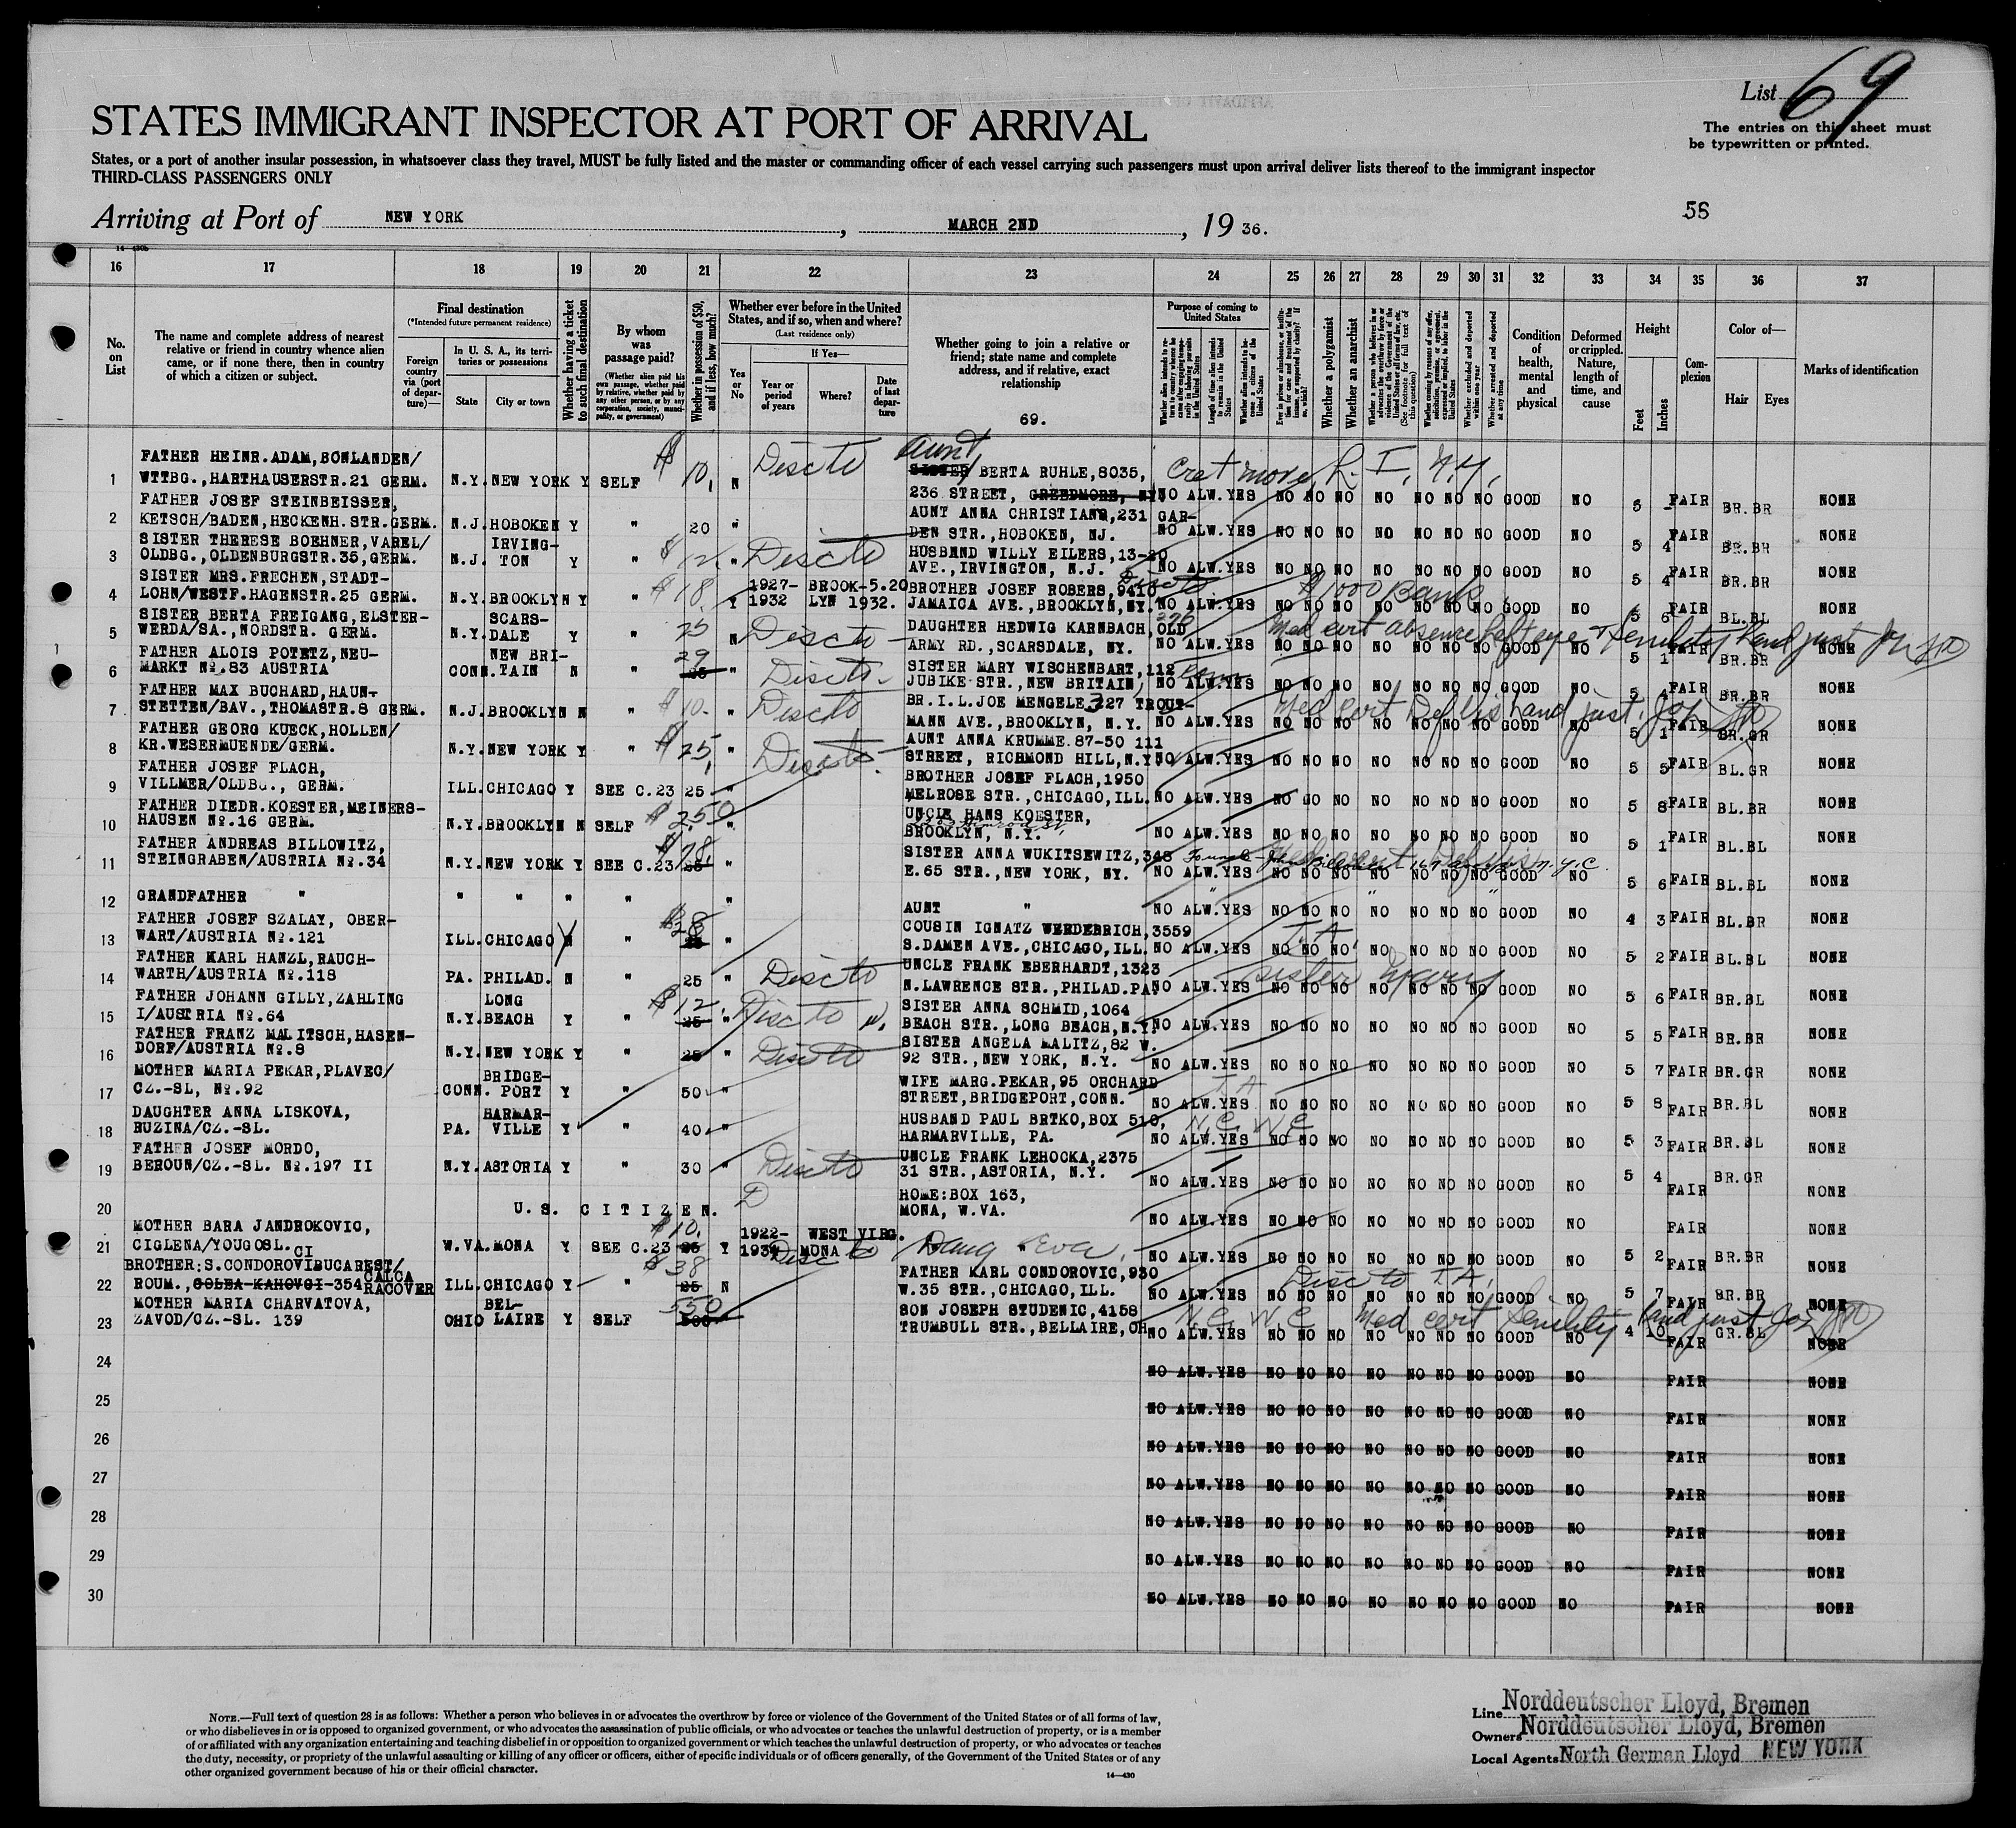 List 69
STATES IMMIGRANT INSPECTOR AT PORT OF ARRIVAL
The entries on this sheet must
be typewritten or printed.
States, or a port of another insular possession, in whatsoever class they travel, MUST be fully listed and the master or commanding officer of each vessel carrying such passengers must upon arrival deliver lists thereof to the immigrant inspector
THIRD-CLASS PASSENGERS ONLY
58
Arriving at Port of NEW YORK, MARCH 2ND, 19 36.
16 17 18 19 20 21 22 23 24 25 26 27 28 29 30 31 32 33 34 35 36 37
No. on List
The name and complete address of nearest relative or friend in country whence alien came, or if none there, then in country of which a citizen or subject.
Final destination
(*Intended future permanent residence)
Foreign country via (port of departure)—
In U. S. A., its territories or possessions
State City or town
Whether having a ticket to such final destination
By whom was passage paid?
(Whether alien paid his own passage, whether paid by relative, whether paid by any other person, or by any corporation, society, municipality, or government)
Whether in possession of $50, and if less, how much?
Whether ever before in the United States, and if so, when and where?
(Last residence only)
Yes or No
If Yes—
Year or period of years
Where?
Date of last departure
Whether going to join a relative or friend; state name and complete address, and if relative, exact relationship
69.
Purpose of coming to United States
Whether a polygamist
Whether an anarchist
Condition of health, mental and physical
Deformed or crippled. Nature, length of time, and cause
Height
Feet Inches
Complexion
Color of—
Hair Eyes
Marks of identification
FATHER HEINR.ADAM,BONLANDEN/ $ Aunt
1 WTTBG.,HARTHAUSERSTR.21 GERM. N.Y. NEW YORK Y SELF 10. N Disc to SISTER BERTA RUHLE,8035,
236 STREET, CREEDMORE, NY. L. I, N.Y. NO ALW.YES NO NO NO NO NO NO NO GOOD NO 5 - FAIR BR.BR NONE
FATHER JOSEF STEINBEISSER,
2 KETSCH/BADEN,HECKENH.STR.GERM. N.J. HOBOKEN Y " 20 " AUNT ANNA CHRISTIANS,231 GAR-
DEN STR., HOBOKEN, NJ. NO ALW.YES NO NO NO NO NO NO NO GOOD NO 5 4 FAIR BR.BR NONE
SISTER THERESE BOEHNER,VAREL/
3 OLDBG.,OLDENBURGSTR.35,GERM. N.J. IRVING-TON Y " $12. " Disc to HUSBAND WILLY EILERS,13-20
AVE.,IRVINGTON, N.J. NO ALW.YES NO NO NO NO NO NO NO GOOD NO 5 4 FAIR BR.BR NONE
SISTER MRS.FRECHEN,STADT-
4 LOHN/WESTF.HAGENSTR.25 GERM. N.Y. BROOKLYN Y " $18. Y 1927-1932 BROOK-LYN 5.20 1932. BROTHER JOSEF ROBERS,9410 Disc to
JAMAICA AVE.,BROOKLYN,NY. $1000 Bank NO ALW.YES NO NO NO NO NO NO NO GOOD NO 5 6 FAIR BL.BL NONE
SISTER BERTA FREIGANG,ELSTER-
5 WERDA/SA.,NORDSTR. GERM. N.Y. SCARS-DALE Y " 25 N Disc to DAUGHTER HEDWIG KARNBACH,OLD
ARMY RD.,SCARSDALE, NY. Med cert absence left eye + senility NO ALW.YES NO NO NO NO NO NO NO GOOD NO 5 1 FAIR BR.BR NONE
FATHER ALOIS POTETZ,NEU-
6 MARKT №.83 AUSTRIA CONN. NEW BRI-TAIN N " 29 25 " Disc to SISTER MARY WISCHENBART,112
JUBIKE STR.,NEW BRITAIN, NO ALW.YES NO NO NO NO NO NO NO GOOD NO 5 4 FAIR BR.BR NONE
FATHER MAX BUCHARD,HAUN-
7 STETTEN/BAV.,THOMASTR.8 GERM. N.J. BROOKLYN N " $10. " Disc to BR.I.L.JOE MENGELE 327 TROUT-
MANN AVE.,BROOKLYN, N.Y. Med cert Def Vis NO ALW.YES NO NO NO NO NO NO NO GOOD NO 5 1 FAIR BR.GR NONE
FATHER GEORG KUECK,HOLLEN/
8 KR.WESERMUENDE/GERM. N.Y. NEW YORK Y " $25. " Disc to AUNT ANNA KRUMME.87-50 111
STREET, RICHMOND HILL,N.Y. NO ALW.YES NO NO NO NO NO NO NO GOOD NO 5 5 FAIR BL.GR NONE
FATHER JOSEF FLACH,
9 VILLMER/OLDBG., GERM. ILL. CHICAGO Y SEE C.23 25 " BROTHER JOSEF FLACH,1950
MELROSE STR.,CHICAGO,ILL. NO ALW.YES NO NO NO NO NO NO NO GOOD NO 5 8 FAIR BL.BR NONE
FATHER DIEDR.KOESTER,MEINERS-
10 HAUSEN №.16 GERM. N.Y. BROOKLYN N SELF $2.50 " UNCLE HANS KOESTER,
BROOKLYN, N.Y. NO ALW.YES NO NO NO NO NO NO NO GOOD NO 5 1 FAIR BL.BL NONE
FATHER ANDREAS BILLOWITZ,
11 STEINGRABEN/AUSTRIA №.34 N.Y. NEW YORK Y SEE C.23 $78. 25 " SISTER ANNA WUKITSEWITZ,348
E.65 STR.,NEW YORK, NY. NO ALW.YES NO NO NO NO NO NO NO GOOD NO 5 6 FAIR BL.BL NONE
12 GRANDFATHER " " " " " " AUNT "
NO ALW.YES NO NO NO NO NO NO NO GOOD NO 4 3 FAIR BL.BR NONE
FATHER JOSEF SZALAY, OBER-
13 WART/AUSTRIA №.121 ILL. CHICAGO N " $28 25 " COUSIN IGNATZ WERDERICH,3559
S.DAMEN AVE.,CHICAGO,ILL. NO ALW.YES NO NO NO NO NO NO NO GOOD NO 5 2 FAIR BL.BL NONE
FATHER KARL HANZL,RAUCH-
14 WARTH/AUSTRIA №.118 PA. PHILAD. N " 25 " Disc to UNCLE FRANK EBERHARDT,1323
N.LAWRENCE STR.,PHILAD.PA. sister Mary NO ALW.YES NO NO NO NO NO NO NO GOOD NO 5 6 FAIR BR.BL NONE
FATHER JOHANN GILLY,ZAHLING
15 I/AUSTRIA №.64 N.Y. LONG BEACH Y " $12. 25 " Disc to SISTER ANNA SCHMID,1064
BEACH STR.,LONG BEACH,N.Y. NO ALW.YES NO NO NO NO NO NO NO GOOD NO 5 5 FAIR BR.BR NONE
FATHER FRANZ MALITSCH,HASEN-
16 DORF/AUSTRIA №.8 N.Y. NEW YORK Y " 25 " Disc to SISTER ANGELA MALITZ,82 W.
92 STR.,NEW YORK, N.Y. NO ALW.YES NO NO NO NO NO NO NO GOOD NO 5 7 FAIR BR.GR NONE
MOTHER MARIA PEKAR,PLAVEC/
17 CZ.-SL, №.92 CONN. BRIDGE-PORT Y " 50 " WIFE MARG.PEKAR,95 ORCHARD
STREET,BRIDGEPORT,CONN. NO ALW.YES NO NO NO NO NO NO NO GOOD NO 5 8 FAIR BR.BL NONE
DAUGHTER ANNA LISKOVA,
18 RUZINA/CZ.-SL. PA. HARMAR-VILLE Y " 40 " HUSBAND PAUL BRTKO,BOX 510,
HARMARVILLE, PA. NO ALW.YES NO NO NO NO NO NO NO GOOD NO 5 3 FAIR BR.BL NONE
FATHER JOSEF MORDO,
19 BEROUN/CZ.-SL. №.197 II N.Y. ASTORIA Y " 30 " Disc to UNCLE FRANK LEHOCKA,2375
31 STR.,ASTORIA, N.Y. NO ALW.YES NO NO NO NO NO NO NO GOOD NO 5 4 FAIR BR.GR NONE
20 U.S. CITIZEN. D HOME:BOX 163,
MONA, W.VA. NO ALW.YES NO NO NO NO NO NO NO GOOD NO FAIR NONE
MOTHER BARA JANDROKOVIC,
21 CIGLENA/YOUGOSL. W.VA. MONA Y SEE C.23 $10. 25 Y 1922-1934 WEST VIRG. MONA Disc to Daug Eva.
NO ALW.YES NO NO NO NO NO NO NO GOOD NO 5 2 FAIR BR.BR NONE
BROTHER:S.CONDOROVICI BUCAREST/
22 ROUM., GOLBA KAHOVGI-354 CALCA RACOVER ILL. CHICAGO Y " $38 25 N FATHER KARL CONDOROVIC,930
W.35 STR.,CHICAGO,ILL. NO ALW.YES NO NO NO NO NO NO NO GOOD NO 5 7 FAIR BR.BR NONE
MOTHER MARIA CHARVATOVA,
23 ZAVOD/CZ.-SL. 139 OHIO BEL-LAIRE Y SELF 550 SON JOSEPH STUDENIC,4158
TRUMBULL STR.,BELLAIRE,OH. Med cert Senility NO ALW.YES NO NO NO NO NO NO NO GOOD NO 4 10 FAIR GR.BL NONE
24 NO ALW.YES NO NO NO NO NO NO NO GOOD NO FAIR NONE
25 NO ALW.YES NO NO NO NO NO NO NO GOOD NO FAIR NONE
26 NO ALW.YES NO NO NO NO NO NO NO GOOD NO FAIR NONE
27 NO ALW.YES NO NO NO NO NO NO NO GOOD NO FAIR NONE
28 NO ALW.YES NO NO NO NO NO NO NO GOOD NO FAIR NONE
29 NO ALW.YES NO NO NO NO NO NO NO GOOD NO FAIR NONE
30 NO ALW.YES NO NO NO NO NO NO NO GOOD NO FAIR NONE
NOTE.—Full text of question 28 is as follows: Whether a person who believes in or advocates the overthrow by force or violence of the Government of the United States or of all forms of law,
or who disbelieves in or is opposed to organized government, or who advocates the assassination of public officials, or who advocates or teaches the unlawful destruction of property, or is a member
of or affiliated with any organization entertaining and teaching disbelief in or opposition to organized government or which teaches the unlawful destruction of property, or who advocates or teaches
the duty, necessity, or propriety of the unlawful assaulting or killing of any officer or officers, either of specific individuals or of officers generally, of the Government of the United States or of any
other organized government because of his or their official character.
14—430
Line Norddeutscher Lloyd, Bremen
Owners Norddeutscher Lloyd, Bremen
Local Agents North German Lloyd NEW YORK